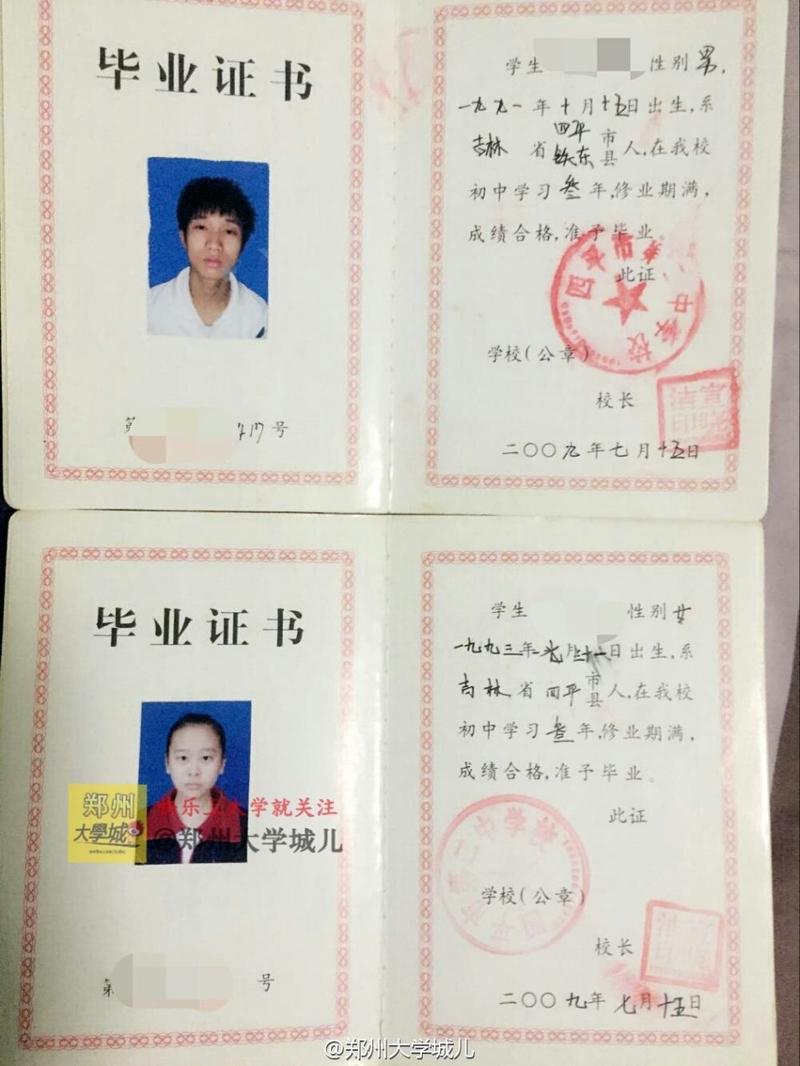 毕业证书
第
号
学生 性别男,
一九九一年十月十五日出生,系
吉林省四平市铁东县人,在我校
初中学习叁年,修业期满,
成绩合格,准予毕业。
此证
学校(公章)
校长
二〇〇九年七月十五日
毕业证书
郑州
大學城
学就关注
@郑州大学城儿
第
号
学生 性别女
一九九三年 月 日出生,系
吉林省四平市县人,在我校
初中学习叁年,修业期满,
成绩合格,准予毕业。
此证
学校(公章)
校长
二〇〇九年七月十五日
@郑州大学城儿